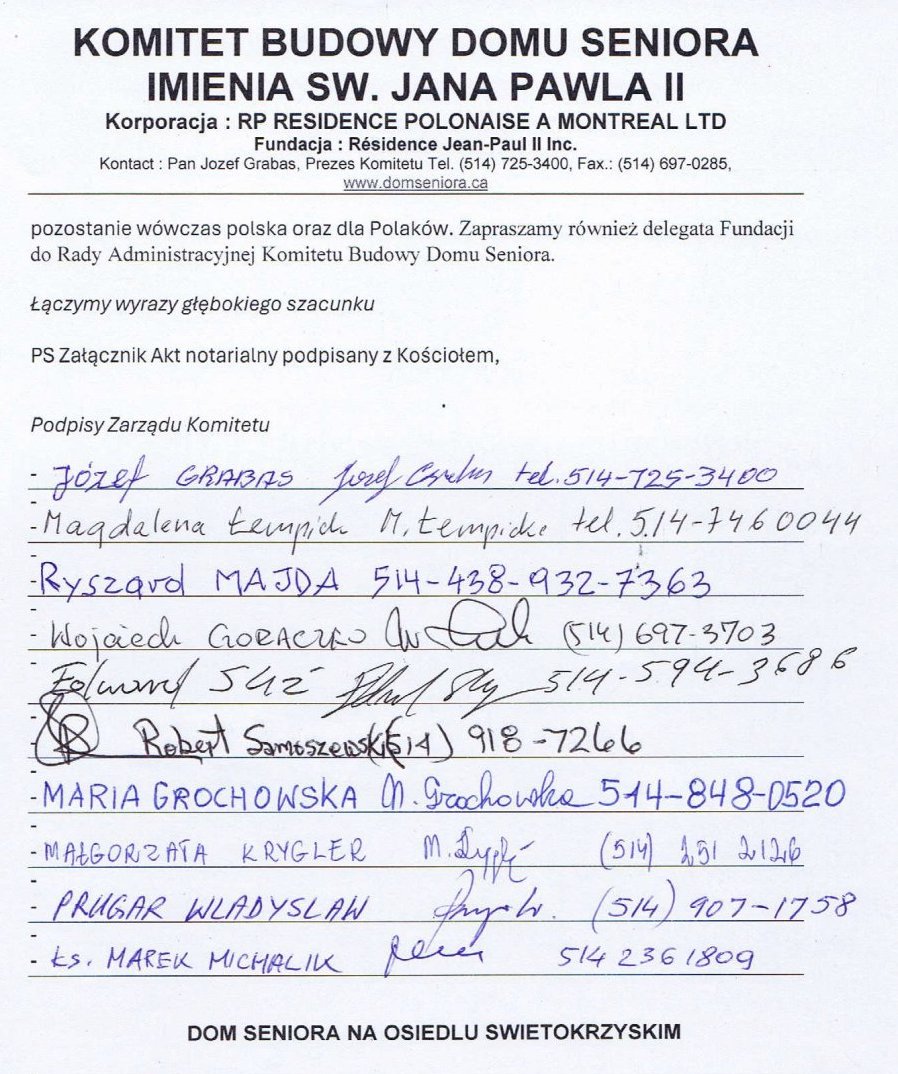 KOMITET BUDOWY DOMU SENIORA
IMIENIA SW. JANA PAWLA II
Korporacja : RP RESIDENCE POLONAISE A MONTREAL LTD
Fundacja : Résidence Jean-Paul II Inc.
Kontact : Pan Jozef Grabas, Prezes Komitetu Tel. (514) 725-3400, Fax.: (514) 697-0285,
www.domseniora.ca
pozostanie wówczas polska oraz dla Polaków. Zapraszamy również delegata Fundacji
do Rady Administracyjnej Komitetu Budowy Domu Seniora.
Łączymy wyrazy głębokiego szacunku
PS Załącznik Akt notarialny podpisany z Kościołem,
Podpisy Zarządu Komitetu
- Józef GRABAS Józef tel. 514-725-3400
- Magdalena M. tel. 514-7460044
- Ryszard MAJDA 514-438-932-7363
- Wojciech GORACZKO (514) 697-3703
Edward 514-594-3686
Robert Samoszewski (514) 918-7266
- MARIA GROCHOWSKA M. Grochowska 514-848-0520
- MAŁGORZATA KRYGLER M. (514) 251 2126
- PRUGAR WLADYSLAW (514) 907-1758
- ks. MAREK MICHALIK 514 236 1809
DOM SENIORA NA OSIEDLU SWIETOKRZYSKIM